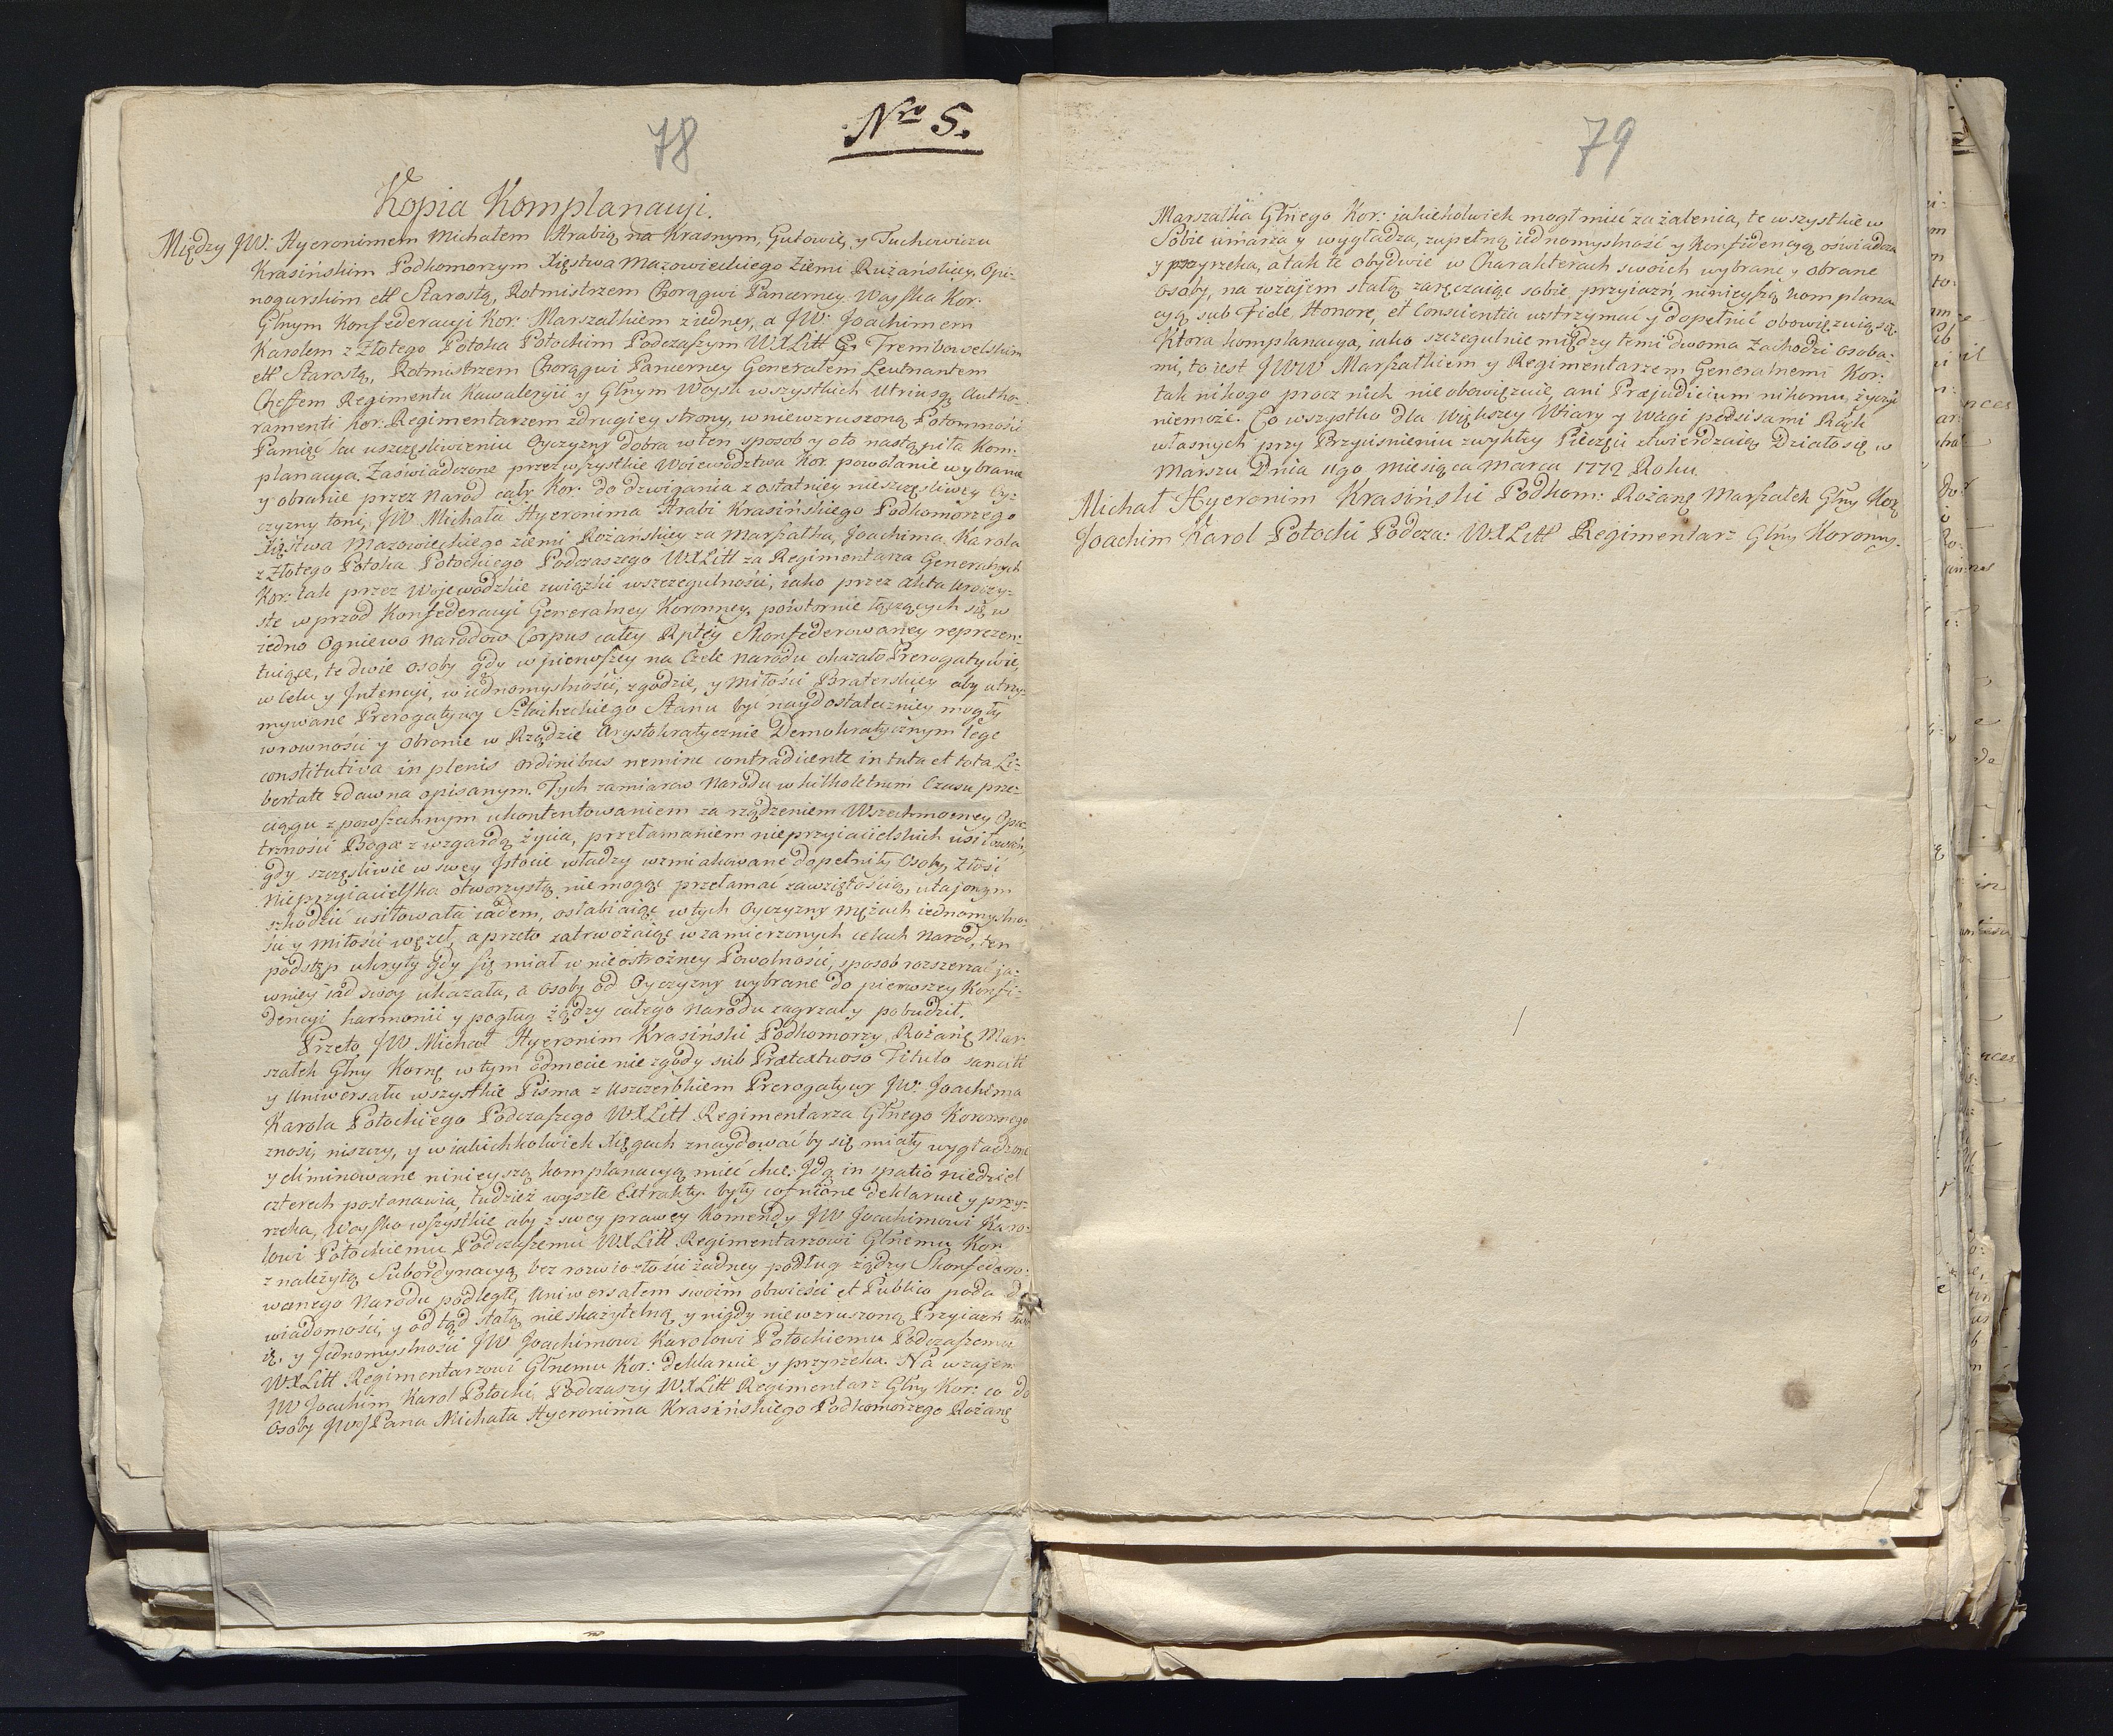 78
Nro 5.
Kopia Komplanacyi.
Między JW. Hyeronimem Michałem Hrabią na Krasnym, Gutowie, y Tuchowiczu
Krasińskim Podkomorzym Xięstwa Mazowieckiego Ziemi Rużańskiey, Opi-
nogurskim ett Starostą, Rotmistrzem Chorągwi Pancerney Woyska Kor.
Głnym Konfederacyi Kor: Marszałkiem z iedney, a JW. Joachimem
Karolem z Złotego Potoka Potockim Podczaszym WXLitt G. Trembowelskim
ett Starostą, Rotmistrzem Chorągwi Pancerney Generałem Leutnantem
Cheffem Regimentu Kawaleryii y Głnym Woysk wszystkich Utriusq Autho-
ramenti Kor: Regimentarzem z drugiey strony, w niewzruszoną Potomności
Pamięć ku uszczęśliwieniu Oyczyzny dobra w ten sposob y oto nastąpiła Kom-
planacya. Zaświadczone przez wszystkie Województwa Kor. powołanie wybrane
y obranie przez Narod cały Kor. do dzwigania z ostatniey nieszczęśliwey Oy-
czyzny toni, JW Michała Hyeronima Hrabi Krasińskiego Podkomorzego
Xięstwa Mazowieckiego ziemi Rożańskiey za Marszałka, Joachima Karola
z Złotego Potoka Potockiego Podczaszego WXLitt za Regimentarza Generalnych
Kor: tak przez Wojewodzkie związki w szczegulności, iako przez Akta Uroczy-
ste w przod Konfederacyi Generalney Koronney, powtornie łączących się w
iedno Ogniewo Narodow Corpus całey Rpltey Skonfederowaney reprezen-
tuiące, te dwie osoby gdy w pierwszey na Czele Narodu okazało Prerogatywie,
w Celu y Intencyi, w iednomyślności, zgodzie, y Miłości Braterskiey aby utrzy-
mywane Prerogatywy Szlacheckiego Stanu być naydostateczniey mogły
w rowności y Obronie w Rządzie Arystokratycznie Demokratycznym lege
constitutiva in plenis ordinibus nemine contradicente in tuta et tota Li-
bertate zdawna opisanym. Tych zamiarow Narodu w kilkoletnim Czasu prze-
ciągu z powszechnym ukontentowaniem za rządzeniem Wszechmocney Opa-
trzności Boga z wzgardą życia, przełamaniem nieprzyiacielskich usiłowań,
gdy szczęśliwie w swey Istocie władzy wzmiankowane dopełniły Osoby, Złość
Nieprzyiacielska otworzystą niemogąc przełamać zawziętością, utajonym
szkodzić usiłowała iadem, osłabiaiąc w tych Oyczyzny Mężach iednomyślno-
ści y Miłości węzeł, a przeto zatrwożaiąc w zamierzonych celach Narod, ten
podstęp ukryty gdy się miał w nieostrożney Powolności, sposob rozszerzać ja-
wniey iad swoy ukazała, a osoby od Oyczyzny wybrane do pierwszey Konfi-
dencyi harmonii y pogług żądzy całego Narodu zagrzał y pobudził.
Przeto JW Michał Hyeronim Krasiński Podkomorzy, Rożańę Mar-
szałek Głny Kornę w tym odmecie nie zgody sub Prætextuoso Titulo Sancitt
y Uniwersału wszystkie Pisma z Uszczerbkiem Prerogatywy JW. Joachima
Karola Potockiego Podczaszego WXLitt Regimentarza Głnego Koronnego
znosi, niszczy, y w iakichkolwiek Xięgach znaydować by się miały wygładzone
y eliminowane ninieyszą komplanacyą mieć chce: Idq in spatio niedziel
czterech postanawia, tudzież wyszłe Extrakty byty cofnione deklaruie y przy-
rzeka, Woysko wszystkie aby z swey prawey Komendy JW Joachimowi Karo-
lowi Potockiemu Podczaszemu WXLitt Regimentarzowi Głnemu Kor
z należytą Subordynacyą bez rozwiozłości żadney podług żądzy Skonfedero-
wanego Narodu podległe, Uniwersałem swoim obwieści et Publico poda do
wiadomości, y odtąd stałą nieskazytelną y nigdy niewzruszoną Przyiazń
y Jednomyślności JW Joachimowi Karolowi Potockiemu Podczaszemu
WXLitt Regimentarzowi Głnemu Kor: deklaruie y przyrzeka. Na wzajem
JW Joachim Karol Potocki, Podczaszy WXLitt Regimentarz Głny Kor: co do
Osoby JWJPana Michała Hyeronima Krasińskiego Podkomorzego Rożańę
79
Marszałka Głnego Kor: jakiekolwiek mogł mieć zażalenia, te wszystkie w
Sobie umarza y wygładza, zupełną iednomyslność y Konfidencyą oświadcza
y przyrzeka, a tak te obydwie w Charakterach swoich wybrane y obrane
osoby, na wzajem stałą zaręczaiąc sobie przyiazń, ninieyszą komplana-
cyą sub Fide Honore, et Conscientia utrzymać y dopełnić obowięzuią się.
Ktora komplanacya, iako szczegulnie między temi dwoma zachodzi osoba-
mi, to iest JWW Marszałkiem y Regimentarzem Generalnemi Kor:
tak nikogo procz nich nieobowięzuie, ani Præjudicium nikomu, życzyć
niemoże. Co wszystko dla większey Wiary y Wagi podpisami Rąk
własnych przy Przyciśnieniu zwykłey Pieczęci ztwierdzaią. Działo się w
Marszu Dnia 11go Miesiąca Marca 1772 Roku.
Michał Hyeronim Krasiński Podkom: Rożanę Marszałek Głny Korę
Joachim Karol Potocki Podcza: WXLitt Regimentarz Głny Koronny.